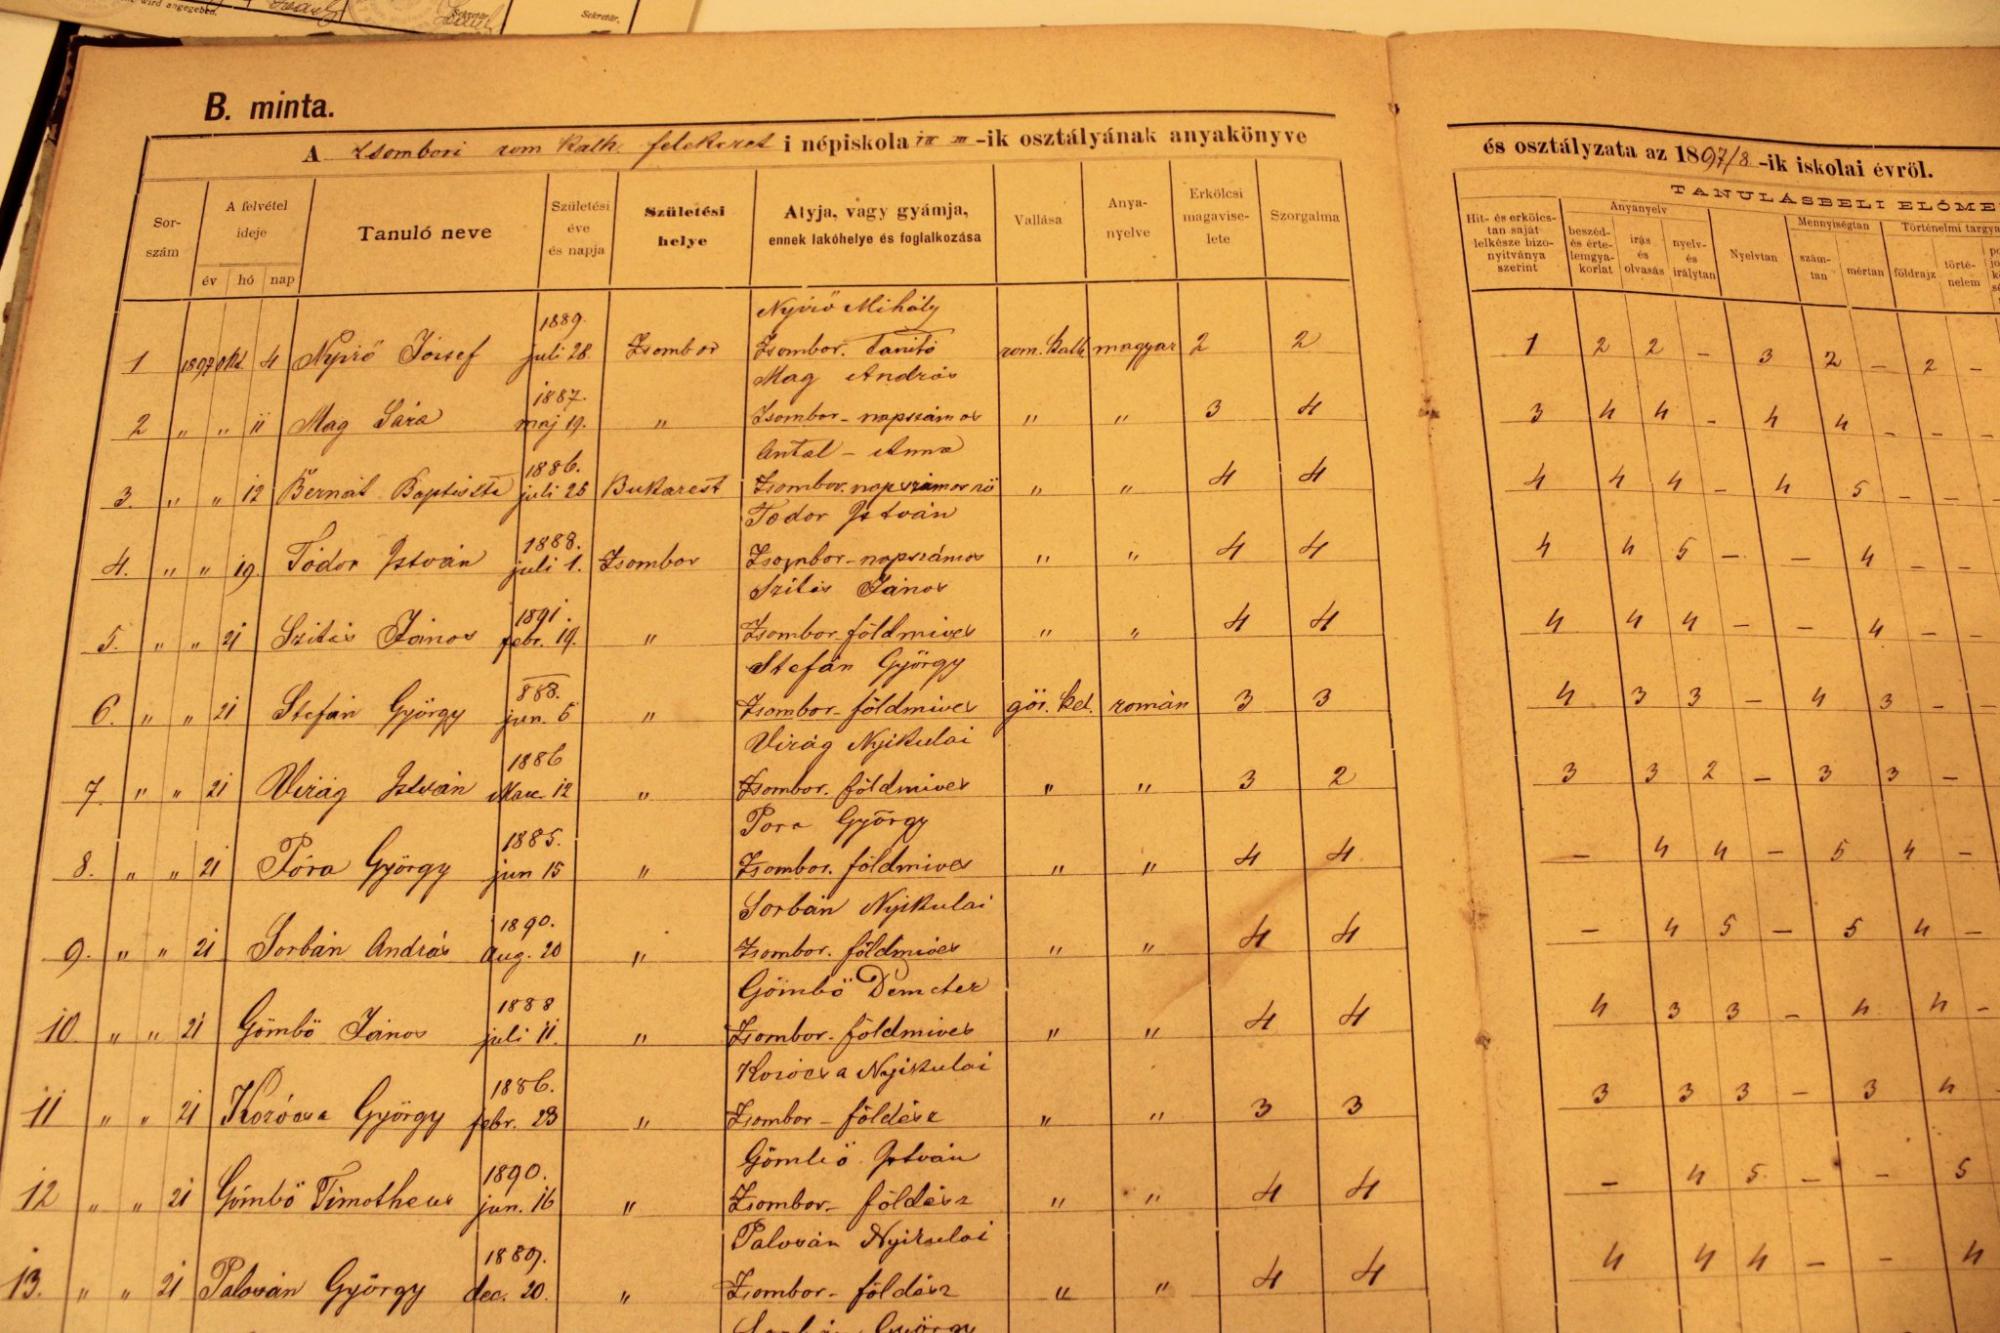 wird angegeben.
Sekretär.
B. minta.
A Zsombori rom kath. felekezet i népiskola -ik osztályának anyakönyve
és osztályzata az 1897/8. -ik iskolai évről.
TANULÁSBELI ELŐME
Sor-
szám
A felvétel
ideje
év hó nap
Tanuló neve
Születési
éve
és napja
Születési
helye
Atyja, vagy gyámja,
ennek lakóhelye és foglalkozása
Vallása
Anya-
nyelve
Erkölcsi
magavise-
lete
Szorgalma
Hit- és erkölcs-
tan saját
lelkésze bizo-
nyítványa
szerint
Anyanyelv
beszéd-
és érte-
lemgya-
korlat
írás
és
olvasás
nyelv-
és
irálytan
Nyelvtan
Mennyiségtan
szám-
tan
mértan
Történelmi tárgya
földrajz
törté-
nelem
Nyirő Mihály
1889.
1 1897 Okt 4 Nyirő József juli 28 Zsombor Zsombor. Tanító rom. kath magyar 2 2 1 2 2 – 3 2 – 2 –
Mag András
1887.
2 " " 11 Mag Sára maj 19. " Zsombor – napszámos " " 3 4 3 4 4 – 4 4 – – –
Antal – Anna
1886.
3. " " 12 Bernát Baptiszta juli 25 Bukarest Zsombor. napszámosnő " " 4 4 4 4 4 – 4 5 – – –
Tódor István
1888.
4. " " 19. Tódor István juli 1. Zsombor Zsombor – napszámos " " 4 4 4 4 5 – – 4 – –
Szitás János
1891.
5. " " 21 Szitás János febr. 19. " Zsombor földmives " " 4 4 4 4 4 – – 4 – –
Stefán György
888.
6. " " 21 Stefán György jun. 5 " Zsombor – földmives gör. kel. román 3 3 4 3 3 – 4 3 – –
Virág Nyikulai
1886
7. " " 21 Virág István Marc. 12 " Zsombor. földmives " " 3 2 3 3 2 – 3 3 –
Pora György
1885.
8. " " 21 Póra György jun 15 " Zsombor. földmives " " 4 4 – 4 4 – 5 4 –
Sorbán Nyikulai
1890.
9. " " 21 Sorbán András aug. 20 " Zsombor. földmives " " 4 4 – 4 5 – 5 4 –
Gömbő Demeter
1888
10 " " 21 Gömbő János juli 11. " Zsombor – földmives " " 4 4 4 3 3 – 4 4 –
Korócsa Nyikulai
1886.
11 " " 21 Korócsa György febr. 23 " Zsombor – földész " " 3 3 3 3 3 – 3 4
István
1890.
12 " " 21 Gömbő Timotheus jun. 16 " Zsombor – földész " " 4 4 – 4 5 – – 5
Palosán Nyikulai
1889.
13. " " 21 Palosán György dec. 20. " Zsombor – földész " " 4 4 4 4 4 – – 4
György